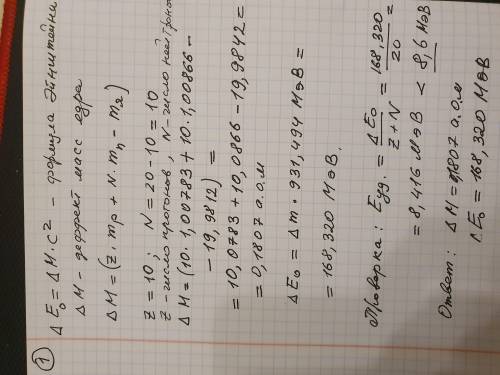 1
ΔE₀ = ΔM·c² – формула Эйнштейна
ΔM – дефект масс ядра
ΔM = (Z·mp + N·mn – mя)
Z = 10; N = 20 – 10 = 10
Z – число протонов, N – число нейтронов
ΔM = (10·1,00783 + 10·1,00866 –
– 19,9812) =
= 10,0783 + 10,0866 – 19,9842 =
= 0,1807 а.о.м
ΔE₀ = Δm·931,494 МэВ =
= 168,320 МэВ.
Проверка: Eуд. = ΔE₀/Z+N = 168,320/20
= 8,416 МэВ < 8,6 МэВ
Ответ: ΔM = 0,1807 а.о.м
ΔE₀ = 168,320 МэВ